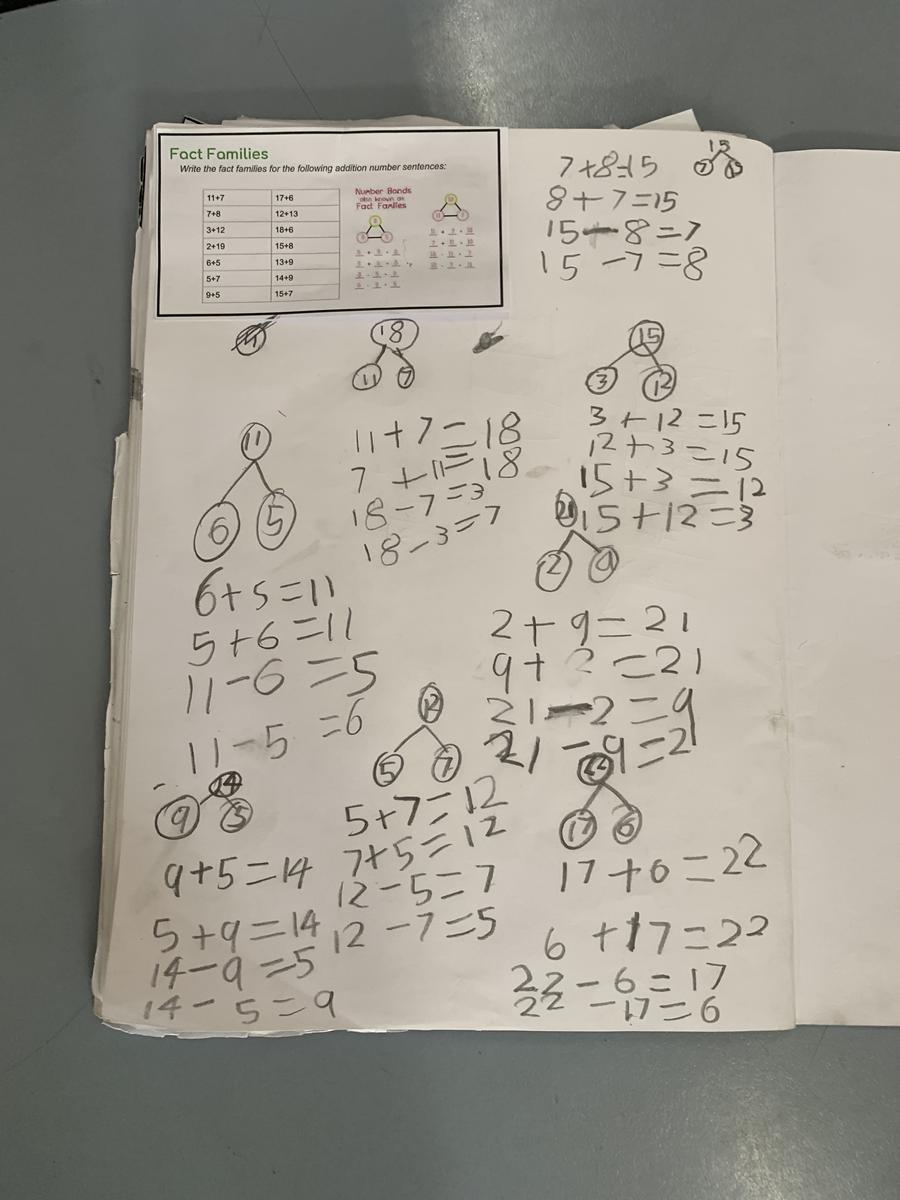 Fact Families
Write the fact families for the following addition number sentences:
11+7 17+6
7+8 12+13
3+12 18+6
2+19 15+8
6+5 13+9
5+7 14+9
9+5 15+7
Number Bonds
also known as
Fact Families
15
7
7+8=15
8+7=15
15-8=7
15-7=8
18
11 7
11+7=18
7+11=18
18-7=3
18-3=7
15
3 12
3+12=15
12+3=15
15+3=12
15+12=3
11
6 5
6+5=11
5+6=11
11-6=5
11-5=6
21
2 9
2+9=21
9+2=21
21-2=9
21-9=2
14
9 5
9+5=14
5+9=14
14-9=5
14-5=9
12
5 7
5+7=12
7+5=12
12-5=7
12-7=5
22
17 6
17+6=22
6+17=22
22-6=17
22-17=6